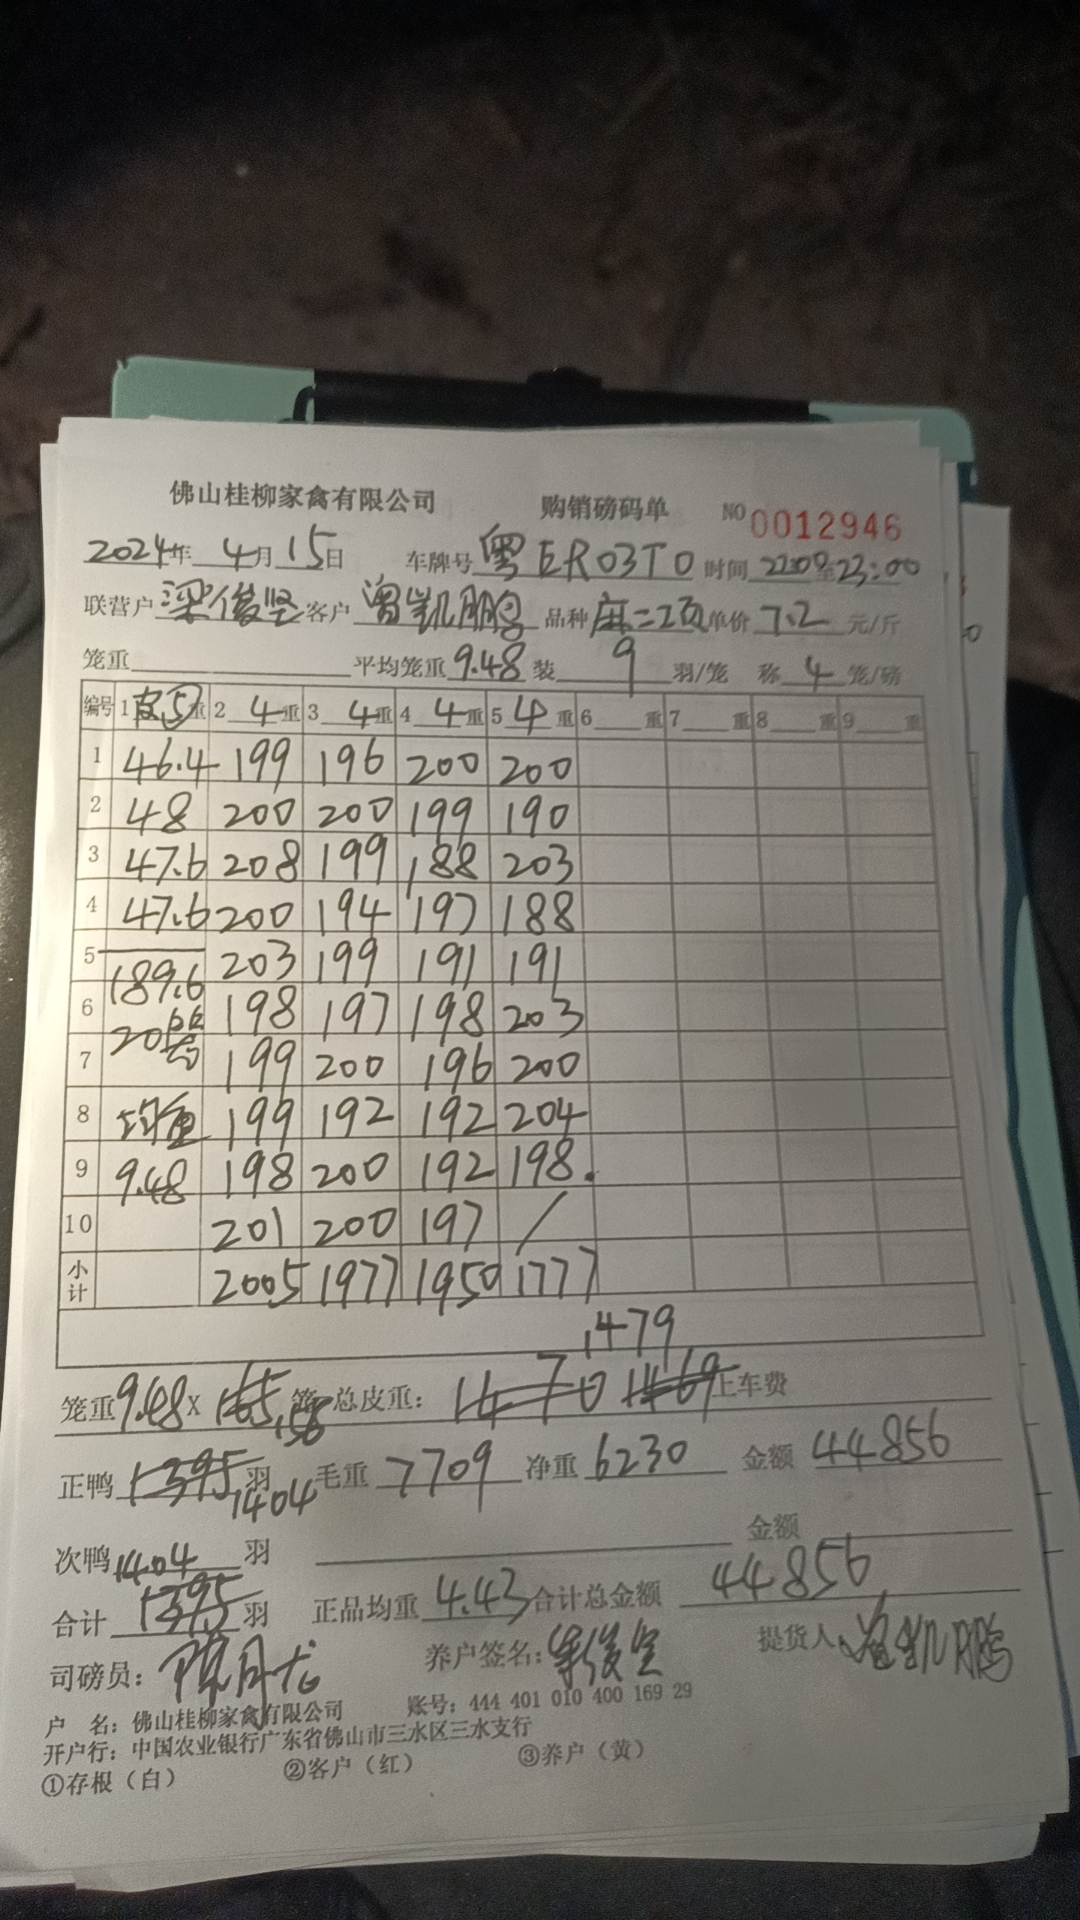 佛山桂柳家禽有限公司 购销磅码单 NO 0012946
2024年 4月15日 车牌号 粤ER03T0 时间 22:00至23:00
联营户 梁俊坚 客户 曾凯鹏 品种 麻二 单价 7.2 元/斤
笼重 平均笼重 9.48 装 9 羽/笼 称 4 笼/磅
编号 1 皮⑤重 2 4重 3 4重 4 4重 5 4重 6 重 7 重 8 重 9 重
1 46.4 199 196 200 200
2 48 200 200 199 190
3 47.6 208 199 188 203
4 47.6 200 194 197 188
5 189.6 203 199 191 191
6 20 198 197 198 203
7 199 200 196 200
8 均重 199 192 192 204
9 9.48 198 200 192 198.
10 201 200 197 /
小计 2005 1977 1950 1777
1479
笼重 9.48 X 165 156 笼 总皮重: 1470 1469 上车费
正鸭 1395 羽 1404 毛重 7709 净重 6230 金额 44856
次鸭 羽 金额
1404
合计 1395 羽 正品均重 4.43 合计总金额 44856
司磅员: 陈月龙 养户签名: 梁俊坚 提货人 曾凯鹏
户 名: 佛山桂柳家禽有限公司 账号: 444 401 010 400 169 29
开户行: 中国农业银行广东省佛山市三水区三水支行
①存根（白） ②客户（红） ③养户（黄）